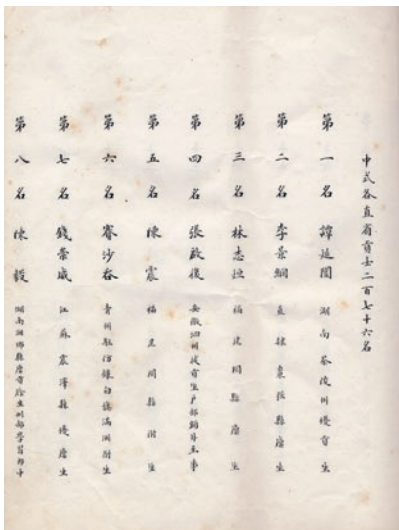 中式各直省貢士二百七十六名
第一名 譚延闓 湖南茶陵州優貢生
第二名 李景綱 直隸棗強縣廩生
第三名 林志烜 福建閩縣廩生
第四名 張啟後 安徽泗州拔貢生戶部額外主事
第五名 陳震 福建閩縣附生
第六名 賽沙 青州駐防鑲白旗滿洲附生
第七名 錢崇威 江蘇震澤縣優廩生
第八名 陳毅 湖南湘鄉縣廩貢生刑部學習郎中